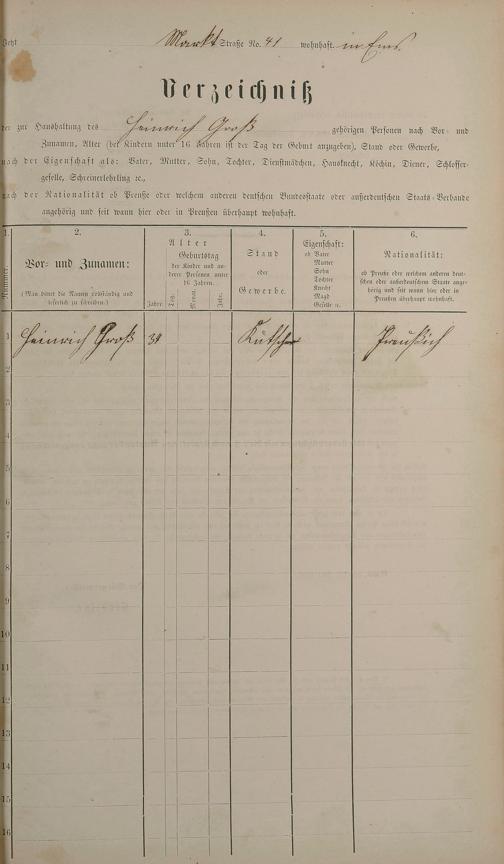 Markt Straße No. 41 wohnhaft. in Ems.
Verzeichniß
der zur Haushaltung des Heinrich Groß gehörigen Personen nach Vor- und
Zunamen, Alter (bei Kindern unter 16 Jahren ist der Tag der Geburt anzugeben), Stand oder Gewerbe,
nach der Eigenschaft als: Vater, Mutter, Sohn, Tochter, Dienstmädchen, Hausknecht, Köchin, Diener, Schlosser-
geselle, Schreinerlehrling ec.,
nach der Nationalität ob Preuße oder welchem anderen deutschen Bundesstaate oder außerdeutschen Staats-Verbande
angehörig und seit wann hier oder in Preußen überhaupt wohnhaft.
1.
Nummer.
2.
Vor- und Zunamen:
(Man bittet die Namen vollständig und
leserlich zu schreiben.)
3.
Alter
Geburtstag
der Kinder und an-
derer Personen unter
16 Jahren.
Jahre.
Tag.
Monat.
Jahr.
4.
Stand
oder
Gewerbe.
5.
Eigenschaft:
ob Vater
Mutter
Sohn
Tochter
Knecht
Magd
Geselle u.
6.
Nationalität:
ob Preuße oder welchem anderen deut-
schen oder außerdeutschen Staate ange-
hörig und seit wann hier oder in
Preußen überhaupt wohnhaft.
1 Heinrich Groß Kutscher Preußich
2
3
4
5
6
7
8
9
10
11
12
13
14
15
16